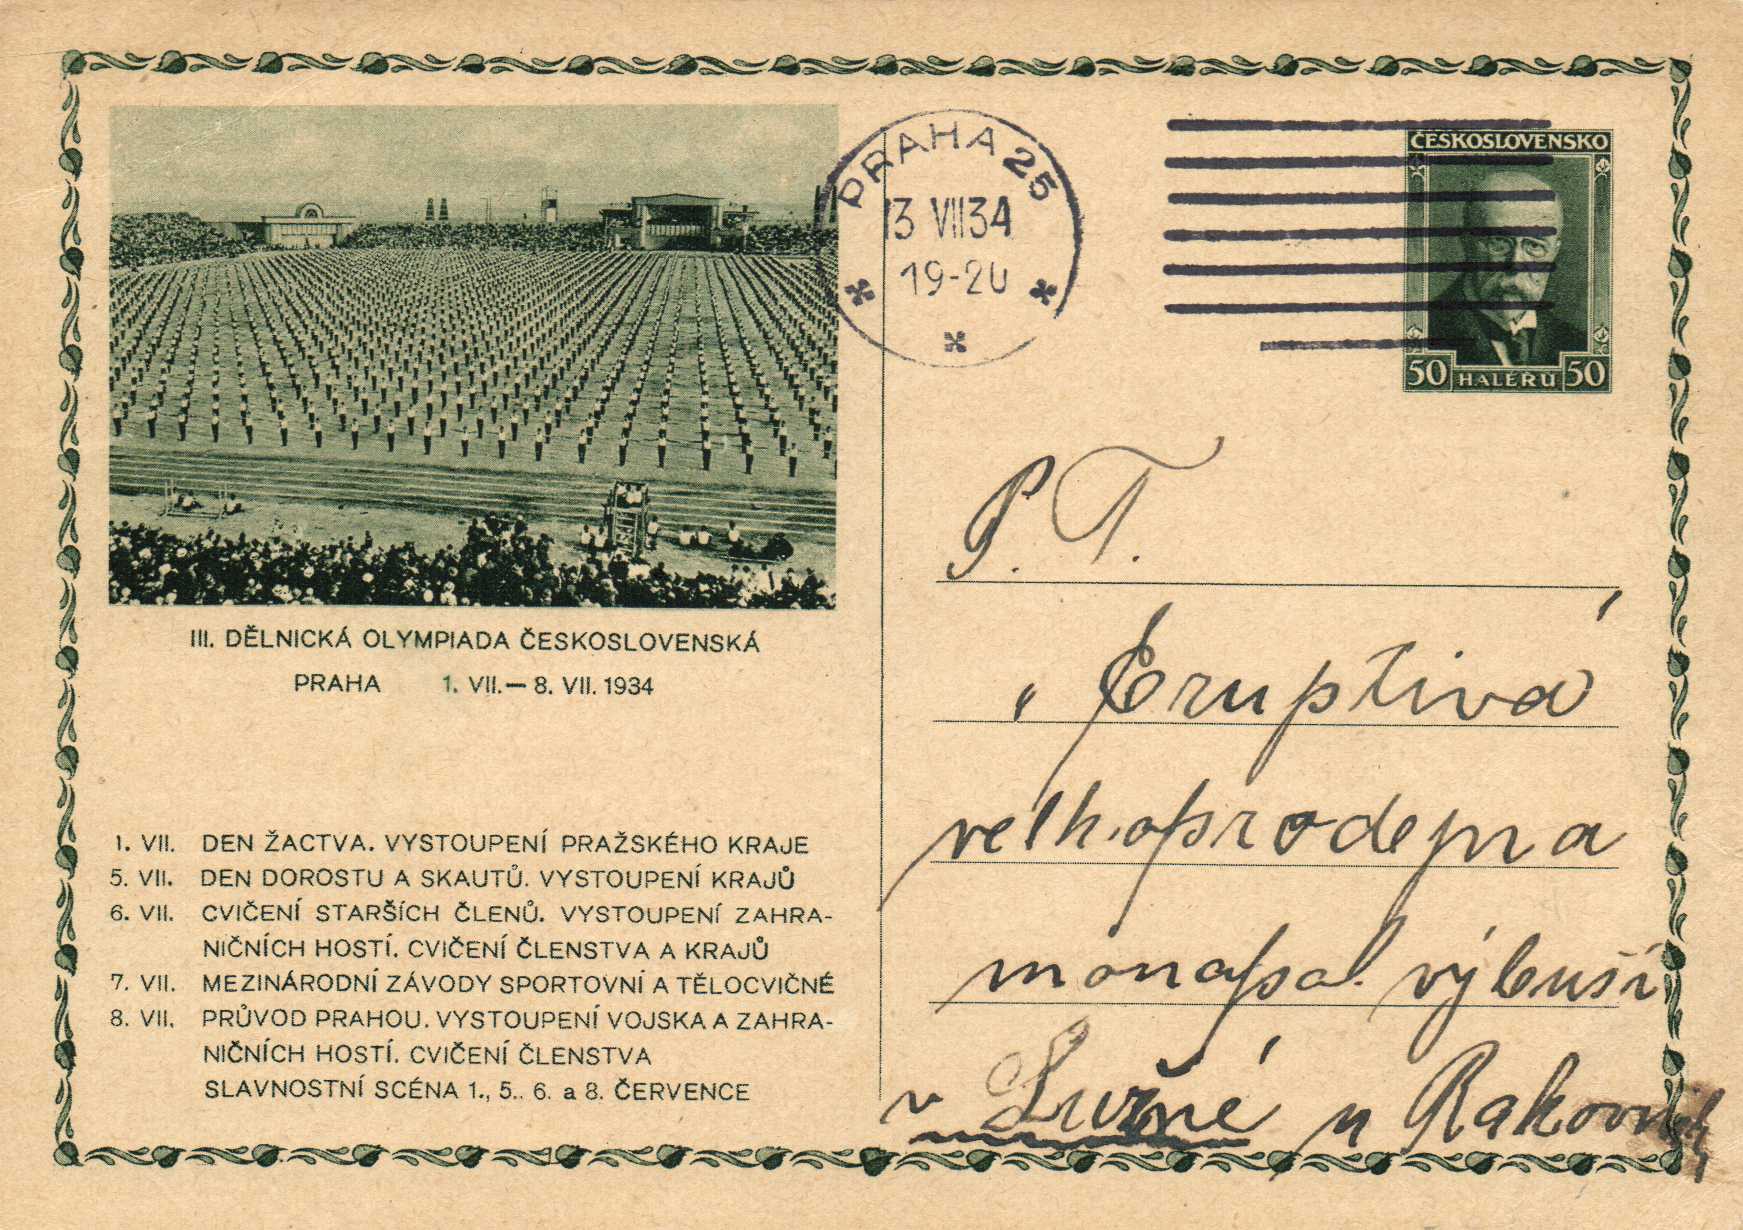 PRAHA 25
13 VII 34
19-20
ČESKOSLOVENSKO
50 HALÉRŮ 50
III. DĚLNICKÁ OLYMPIADA ČESKOSLOVENSKÁ
PRAHA 1. VII. — 8. VII. 1934
1. VII. DEN ŽACTVA. VYSTOUPENÍ PRAŽSKÉHO KRAJE
5. VII. DEN DOROSTU A SKAUTŮ. VYSTOUPENÍ KRAJŮ
6. VII. CVIČENÍ STARŠÍCH ČLENŮ. VYSTOUPENÍ ZAHRA-
NIČNÍCH HOSTÍ. CVIČENÍ ČLENSTVA A KRAJŮ
7. VII. MEZINÁRODNÍ ZÁVODY SPORTOVNÍ A TĚLOCVIČNÉ
8. VII. PRŮVOD PRAHOU. VYSTOUPENÍ VOJSKA A ZAHRA-
NIČNÍCH HOSTÍ. CVIČENÍ ČLENSTVA
SLAVNOSTNÍ SCÉNA 1., 5.. 6. a 8. ČERVENCE
P. T.
"Eruptiva"
velkoprodejna
monopol. výbuši
v Lužné u Rakovník